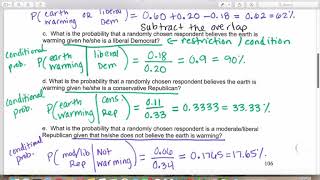 P(earth warming or liberal Dem) = 0.60 + 0.20 - 0.18 = 0.62 = 62%
Subtract the overlap
c. What is the probability that a randomly chosen respondent believes the earth is
warming given he/she is a liberal Democrat? ← restriction / condition
conditional prob. P(earth warming | liberal Dem) = 0.18 / 0.20 = 0.9 = 90%
d. What is the probability that a randomly chosen respondent believes the earth is
warming given he/she is a conservative Republican?
conditional prob. P(earth warming | Cons. Rep) = 0.11 / 0.33 = 0.3333 = 33.33%
e. What is the probability that a randomly chosen respondent is a moderate/liberal
Republican given that he/she does not believe the earth is warming?
conditional prob. P(mod/lib Rep | Not warming) = 0.06 / 0.34 = 0.1765 = 17.65%
106